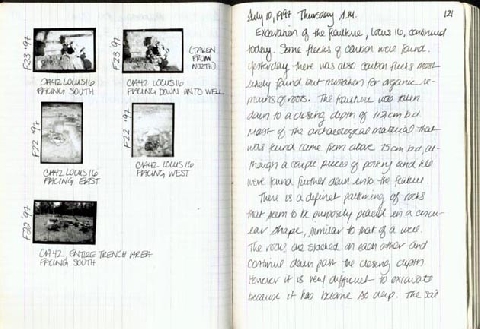 F23 '97
CA42 LOCUS 16
FACING SOUTH
F23 '97
(TAKEN
FROM
NORTH)
CA42 LOCUS 16
FACING DOWN INTO WELL
F22 '97
CA42 LOCUS 16
FACING EAST
F22 '97
CA42 LOCUS 16
FACING WEST
F22 '97
CA42 ENTIRE TRENCH AREA
FACING SOUTH
July 10, 1997 Thursday A.M.
121
Excavation of the feature, Locus 16, continued
today. Some flecks of carbon were found.
Yesterday there was also carbon flecks most
likely found but mistaken for organic
of roots. The feature was taken
down to a closing depth of cm but
most of the archaeological material that
was found came from above cm but al-
though a couple pieces of pottery and
were found further down into the feature
There is a definite patterning of rocks
that seem to be purposely placed in a circu-
lar shape, similar to that of a well.
The rocks are stacked on each other and
continue down past the closing depth
However it is very difficult to excavate
because it has become so deep. The soil